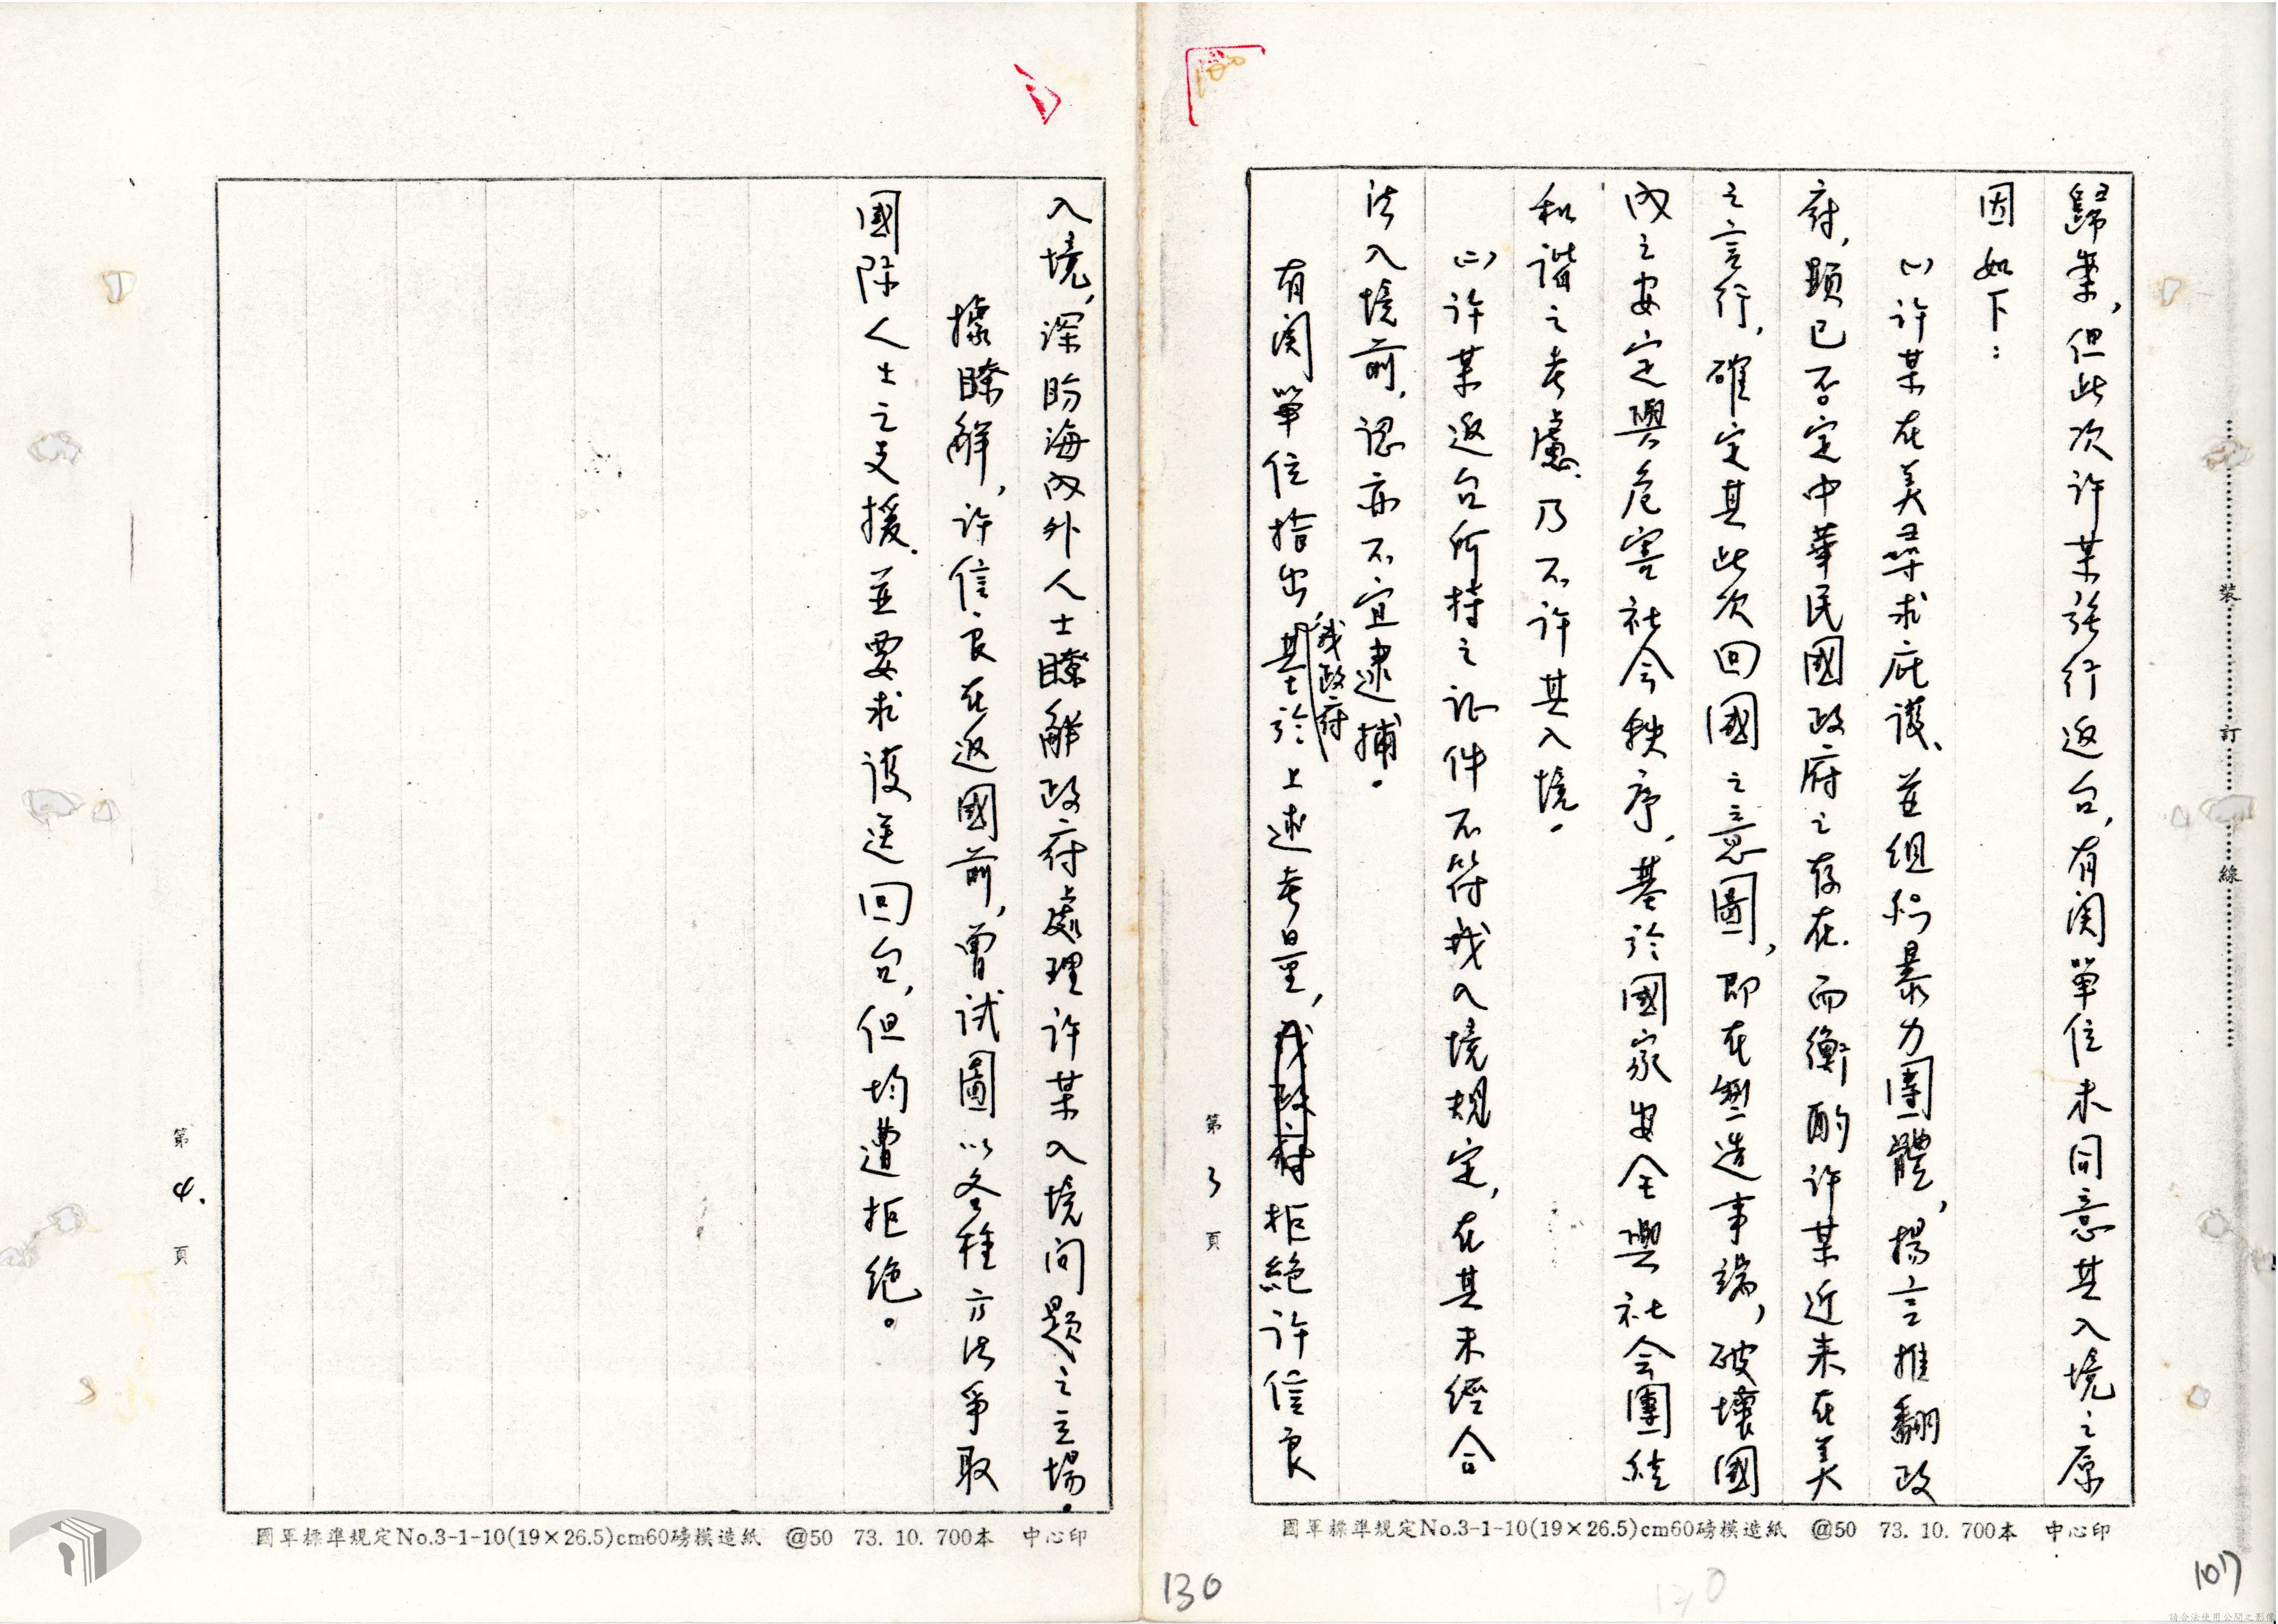 歸案，但此次許某強行返台，有関單位未同意其入境之原
因如下：
㈠許某在美尋求庇護、並組織暴力團體，揚言推翻政
府，顯已否定中華民國政府之存在、而衡酌許某近来在美
之言行，確定其此次回國之意圖，即在製造事端，破壞國
內之安定與危害社会秩序，基於國家安全與社会團結
和諧之考慮、乃不许其入境。
㈡許某返台所持之证件不符我入境規定，在其未經合
法入境前，認亦不宜逮捕。
我政府
有関單位指出基於上述考量，我政府拒絕許信良
第 3 頁
裝 訂 線
國軍標準規定No.3-1-10(19×26.5)cm60磅模造紙 @50 73. 10. 700本 中心印
107
130
入境，深盼海內外人士瞭解政府處理許某入境问題之立場。
據瞭解，許信良在返國前，曾試圖以各種方法爭取
國際人士之支援、並要求護送回台，但均遭拒绝。
第 4. 頁
國軍標準規定No.3-1-10(19×26.5)cm60磅模造紙 @50 73. 10. 700本 中心印
請合法使用公開之影像